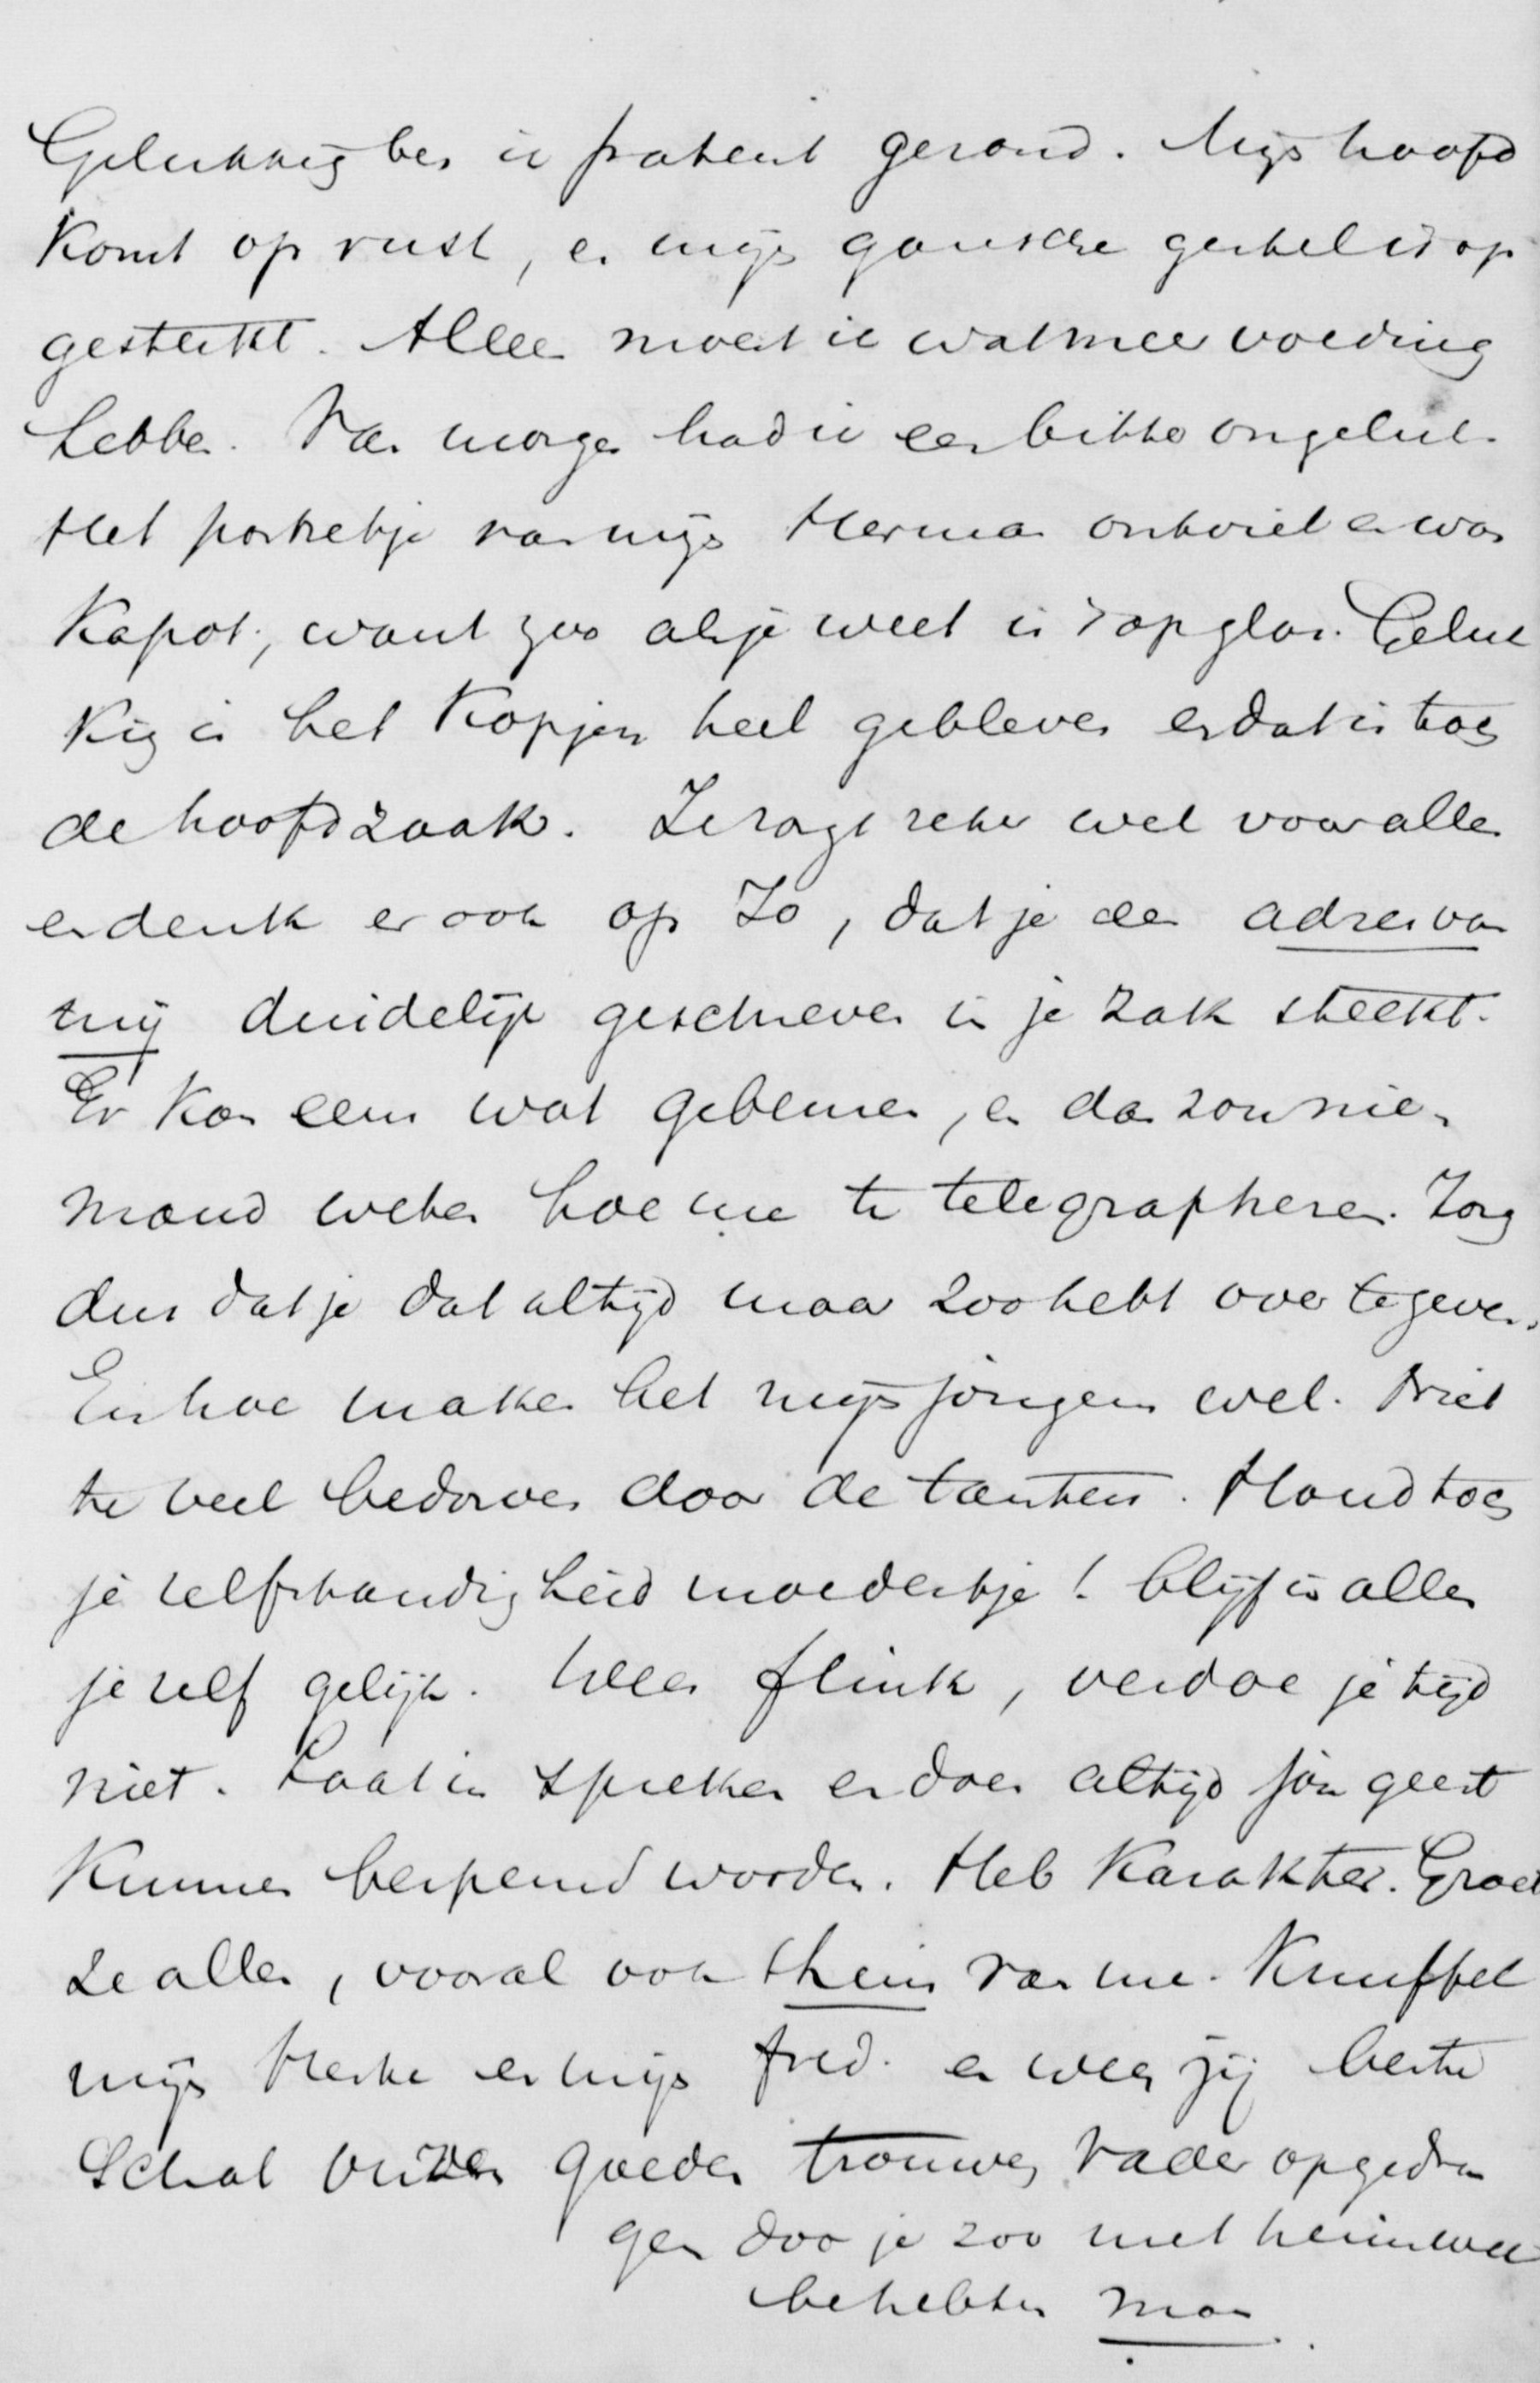 Gelukkig ben ik patent gezond. Mijn hoofd
komt op rust, en mijn gansche gestel is op
gesterkt. Alleen moest ik wat meer voeding
hebben. Van morgen had ik een bitter ongeluk.
Het portretje van mijn Herman ontviel en was
kapot, want zoo als je weet is 't op glas. Geluk
kig is het kopjen heel gebleven en dat is toch
de hoofdzaak. Je zorgt zeker wel voor alles
en denk er ook op Jo, dat je een adres van
mij duidelijk geschreven in je zak steekt.
Er kan eens wat gebeuren, en dan zou nie-
mand weten hoe me te telegrapheren. Zorg
dus dat je dat altijd maar zoo hebt over te geven.
En hoe maken het mijn jongens wel. Niet
te veel bedorven door de tantens. Houd toch
je zelfstandigheid moedertje! blijf in alles
je zelf gelijk. Wees flink, verdoe je tijd
niet. Laat in spreken en doen altijd jou geest
kunnen bespeurd worden. Heb karakter. Groet
ze allen, vooral ook thuis van me. Knuffel
mijn Herke en mijn Fred. en wees jij beste
Schat onzen goeden trouwen Vader opgedra
gen door je zoo met heimwee
behebten man.